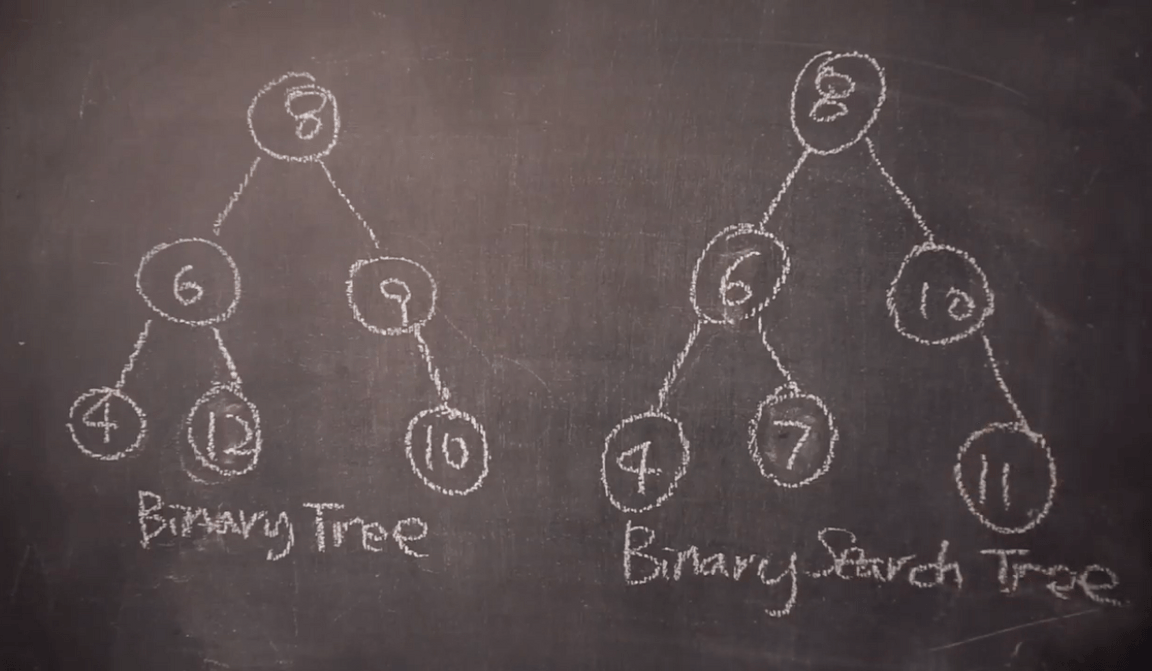 8
6 9
4 12 10
Binary Tree
8
6 10
4 7 11
Binary Search Tree